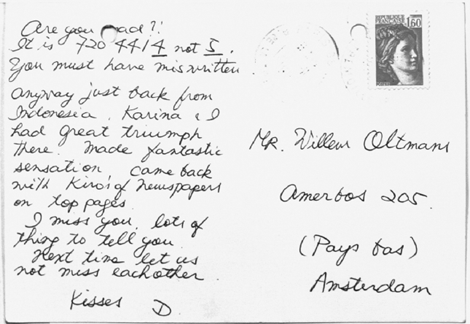 Are you mad?!
It is 720 4414 not 5.
You must have miswritten
anyway just back from
Indonesia. Karina & I
had great triumph
there. Made fantastic
sensation, came back
with Kiro's of newspapers
on top pages.
I miss you, lots of
thing to tell you.
Next time let us
not miss eachother.
Kisses D.
Mr. Willem Oltmans
Amerbos 205.
(Pays bas)
Amsterdam
1,60